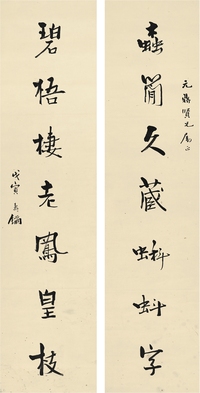 元賢兄屬正
蠹簡久藏蝌蚪字
碧梧棲老鳳皇枝
戊寅